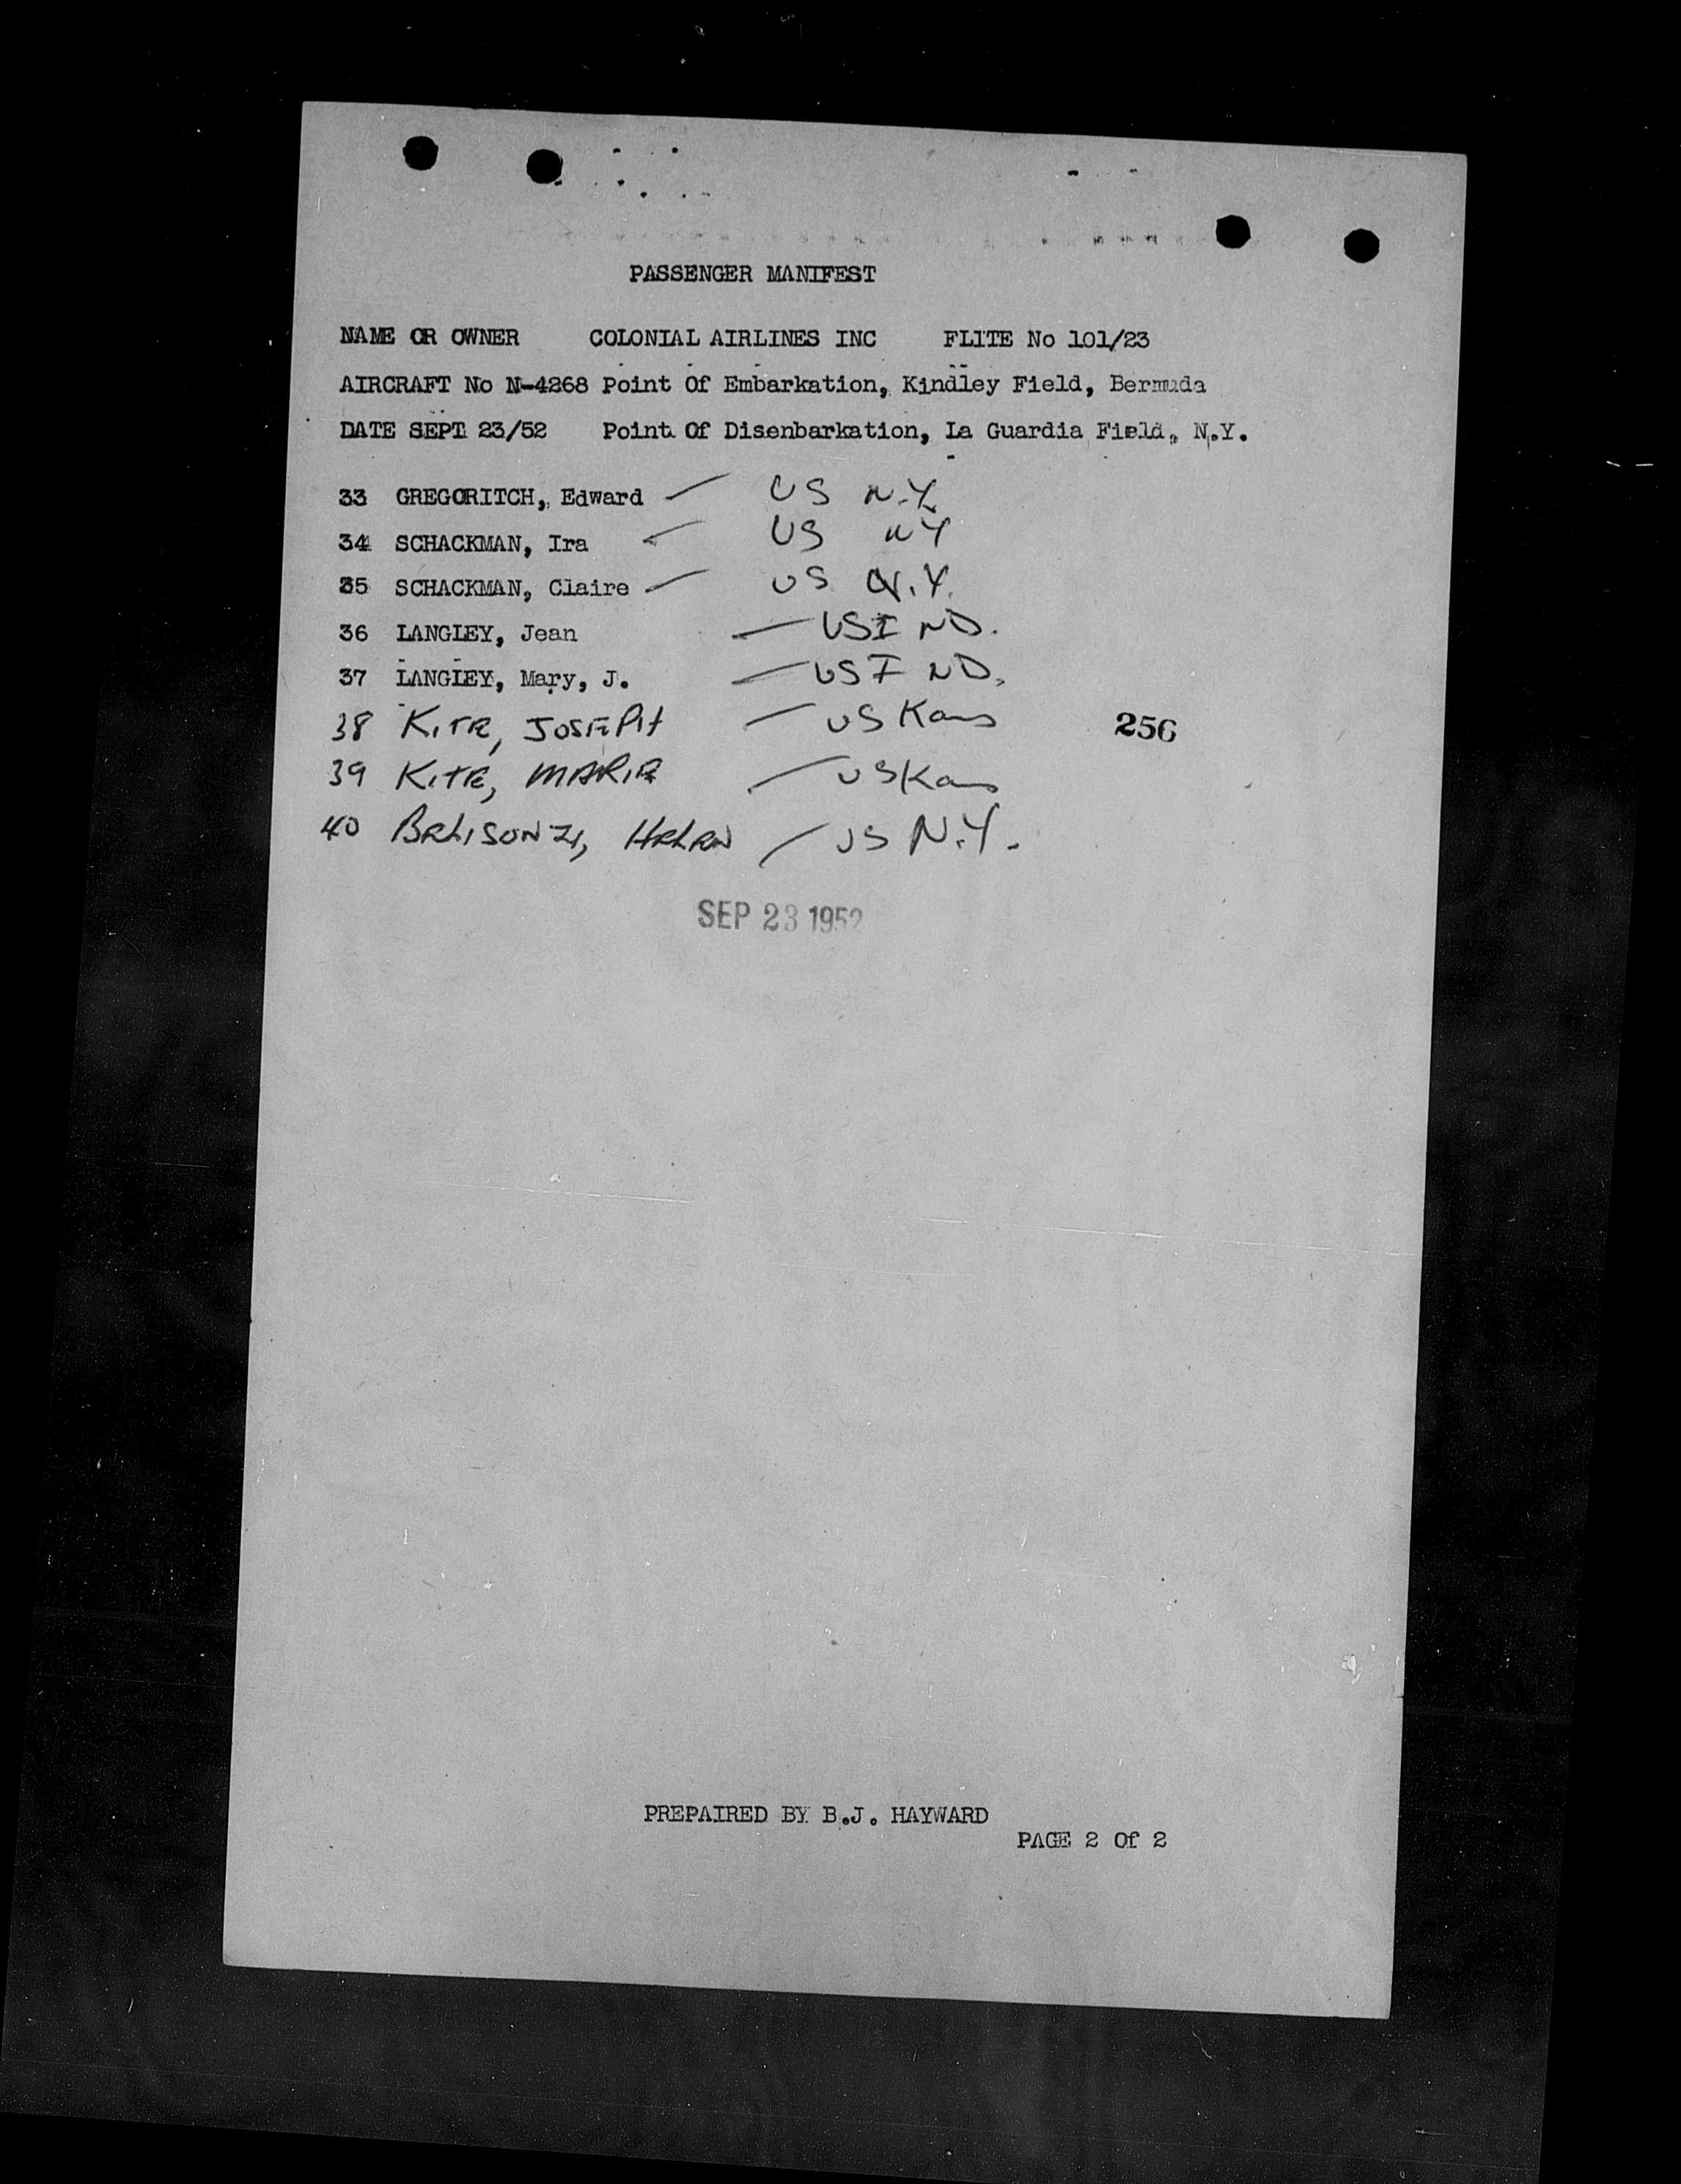 PASSENGER MANIFEST
NAME OR OWNER COLONIAL AIRLINES INC FLITE No 101/23
AIRCRAFT No N-4268 Point Of Embarkation, Kindley Field, Bermuda
DATE SEPT 23/52 Point Of Disenbarkation, La Guardia Field, N.Y.
33 GREGORITCH, Edward — US N.Y.
34 SCHACKMAN, Ira — US NY
35 SCHACKMAN, Claire — US N.Y.
36 LANGLEY, Jean — US IND.
37 LANGLEY, Mary, J. — US IND.
38 KITE, JOSEPH — US Kans 256
39 KITE, MARIE — US Kans
40 HELEN — US N.Y.
SEP 23 1952
PREPAIRED BY B.J. HAYWARD
PAGE 2 Of 2